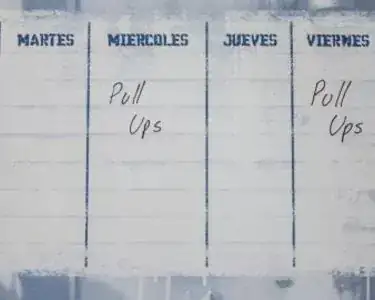 MARTES MIERCOLES JUEVES VIERNES
Pull Pull
Ups Ups